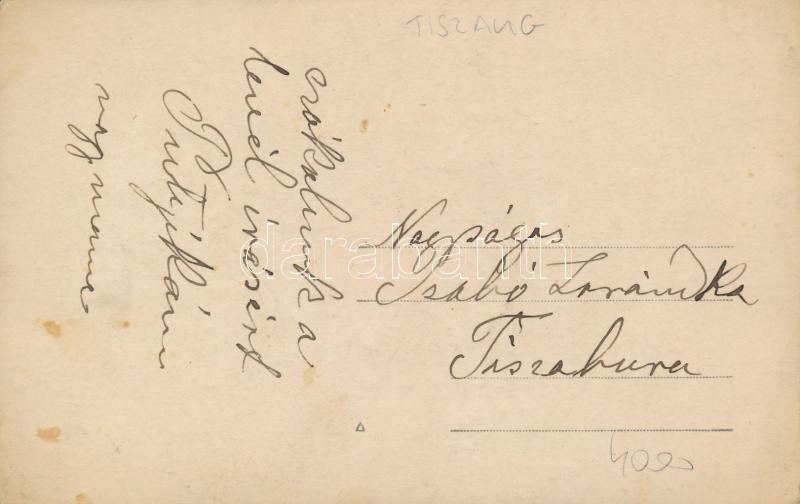 TISZAUG
csókolunk a
levél irásért
Putyikám
nagymama
Nagyságos
Szabó Lorándka
Tiszabura
darabanth
4000